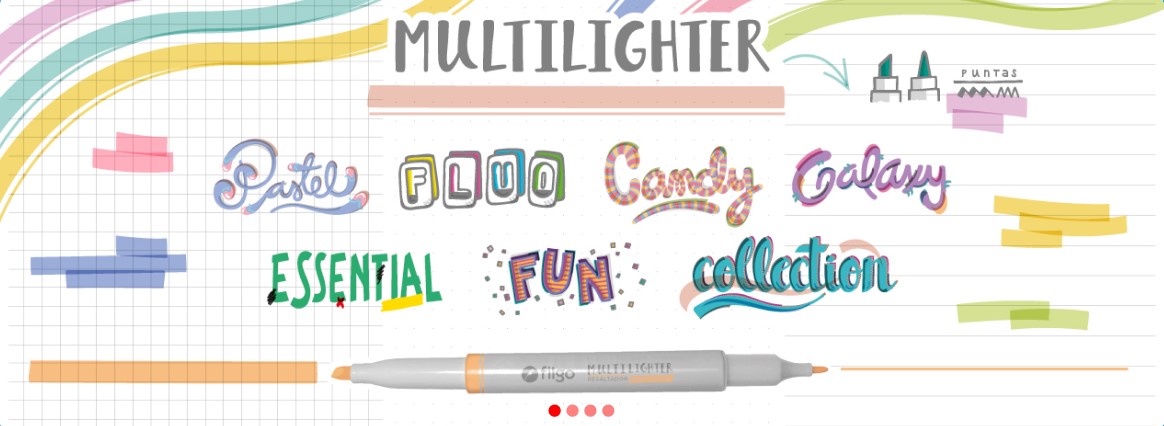 MULTILIGHTER
PUNTAS
Pastel
FLUO
Candy
Galaxy
ESSENTIAL
FUN
collection
filgo
MULTILIGHTER
RESALTADOR